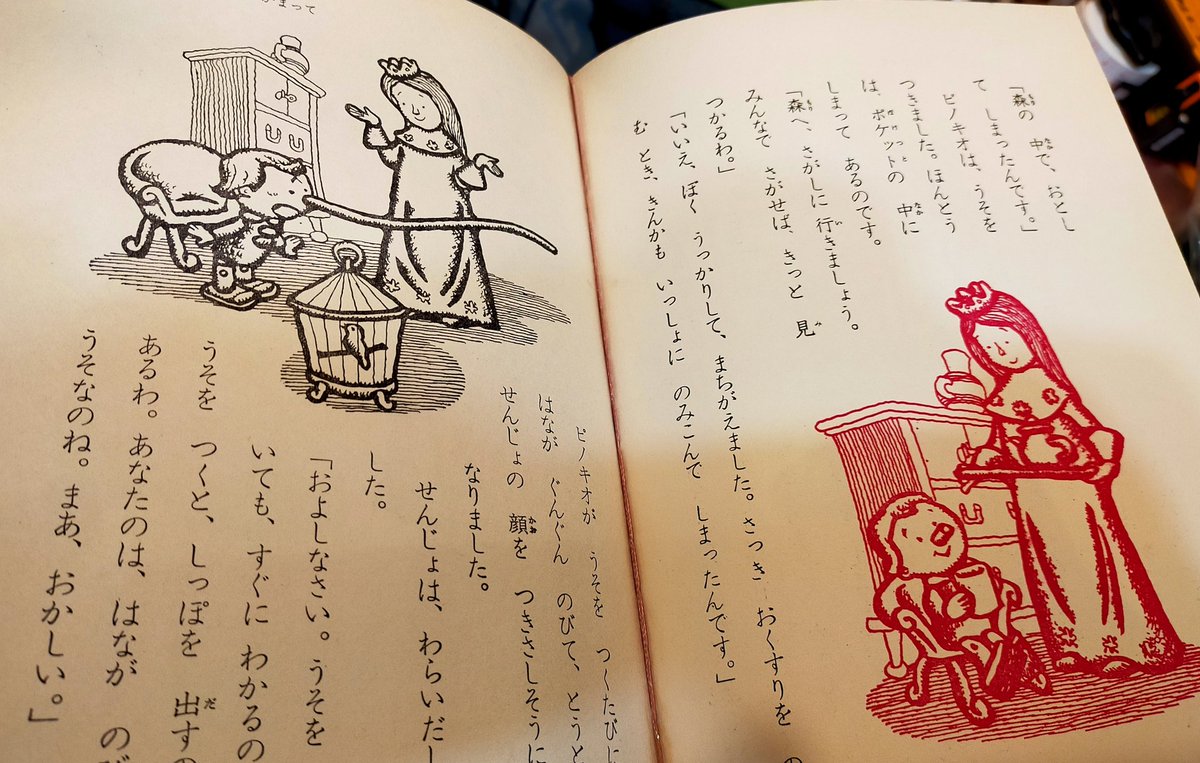 「森の 中で、おとし
て しまったんです。」
ピノキオは、うそを
つきました。ほんとう
は、ポケットの 中に
しまって あるのです。
「森へ、さがしに 行きましょう。
みんなで さがせば、きっと 見
つかるわ。」
「いいえ、ぼく うっかりして、まちがえました。さっき おくすりを の
む とき、きんかも いっしょに のみこんで しまったんです。」
ピノキオが うそを つくたびに
はなが ぐんぐん のびて、とうと
せんじょの 顔を つきさしそうに
なりました。
せんじょは、わらいだし
した。
「およしなさい。うそを
いても、すぐに わかるの
うそを つくと、しっぽを 出すの
あるわ。あなたのは、はなが のび
うそなのね。まあ、おかしい。」